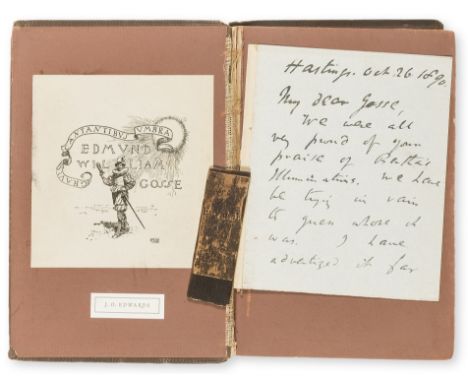 GRAVIS CANTANTIBUS UMBRA
EDMUND
WILLIAM
GOSSE
J. G. EDWARDS
Hastings. Oct. 26. 1890.
My dear Gosse,
We were all
very proud of your
praise of
Illuminations. We have
be trying in vain
to guess whose it
was. I have
advertized it far